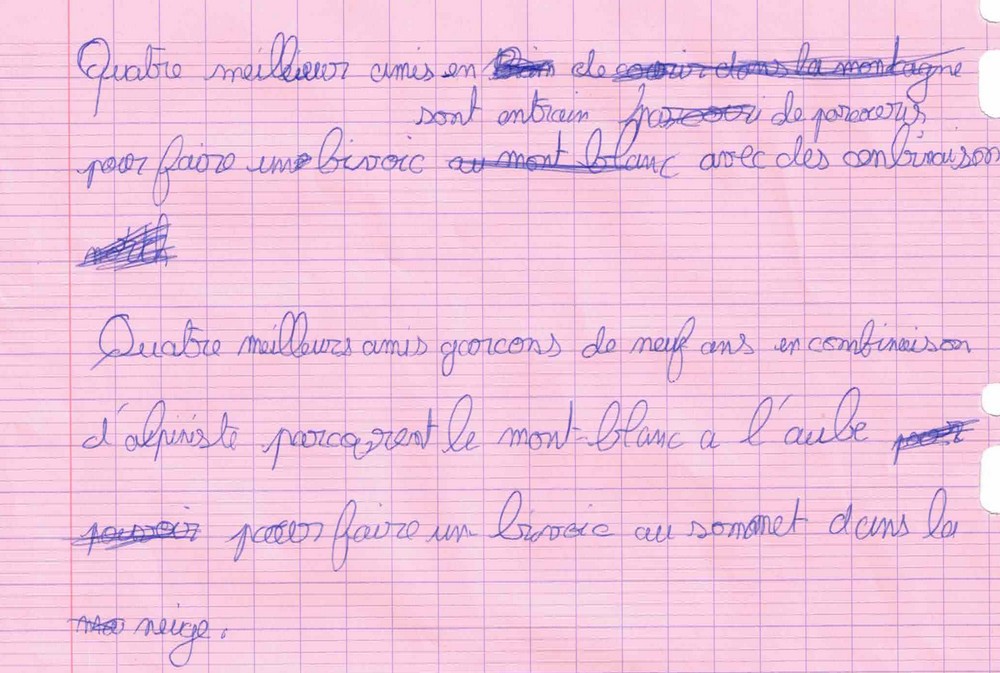 Quatre meilleur amis en de courir dans la montagne
sont entrain parcouri de parcouris
pour faire un bivoic au mont blanc avec des conbinaison
Quatre meilleurs amis garcons de neuf ans en combinaison
d'alpiniste parcourent le mont-blanc a l'aube
pouvoir pour faire un bivoic au sommet dans la
neige.